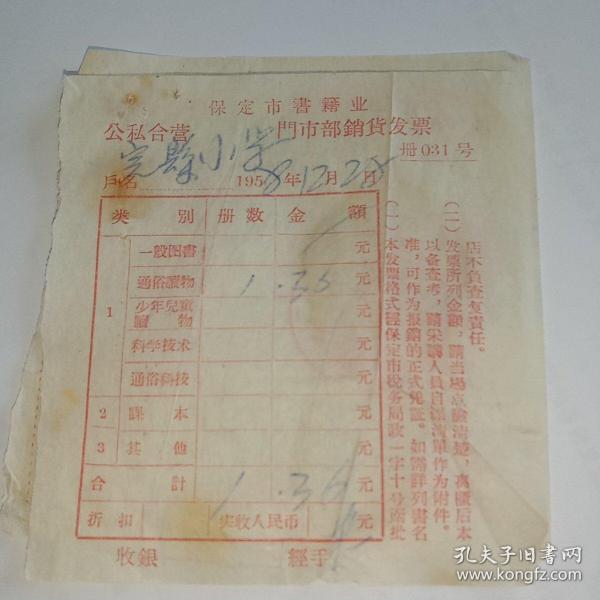 保定市書籍业
公私合营 門市部銷貨发票
册031号
戶名 完縣小学 1958年12月28日
类别 册数 金額
1 一般图書 元
通俗讀物 1.36 元
少年兒童讀物 元
科学技术 元
通俗科技 元
2 課本 元
3 其他 元
合計 1.36 元
折扣 实收人民币 元
收銀 經手
(一)本发票格式經保定市稅务局政一字十号
准,可作为报銷的正式凭証。如需詳列書名
以备查考,請采購人員自繕清單作为附件。
(二)发票所列金額,請当場点驗清楚,离櫃后本
店不負查复責任。
孔夫子旧書网
www.kongfz.com